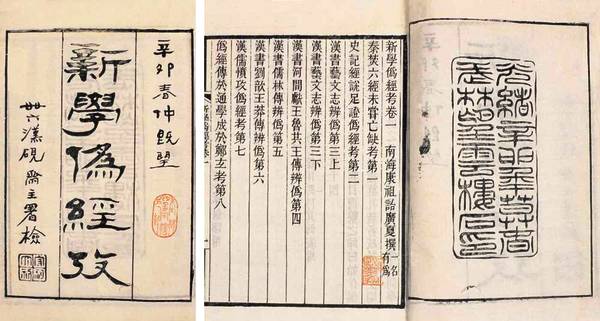 辛卯春仲既望
新學僞經攷
卅六漢硯齋主署檢
新學僞經考卷一 南海康祖詒廣厦撰 一名有爲
秦焚六經未嘗亡缺考第一
史記經說足證僞經考第二
漢書藝文志辨僞第三上
漢書藝文志辨僞第三下
漢書河間獻王魯共王傳辨僞第四
漢書儒林傳辨僞第五
漢書劉歆王莽傳辨僞第六
漢儒憤攻僞經考第七
僞經傳於通學成於鄭玄考第八
光緒辛卯
武林望雲樓石印